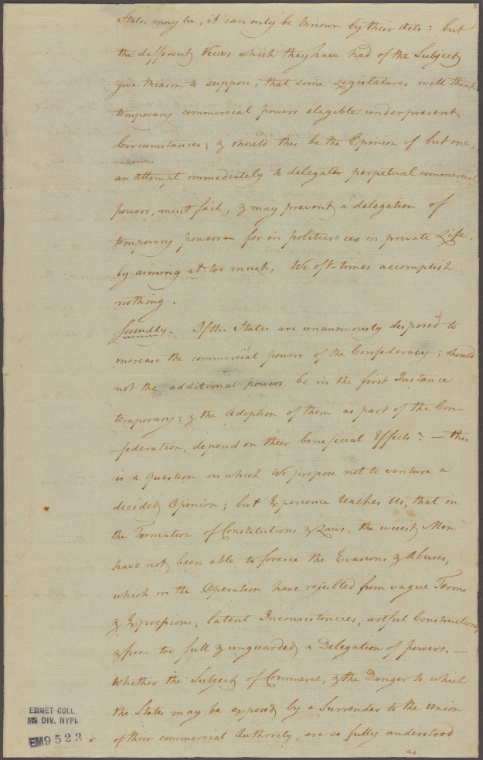 States may be, it can only be known by their Acts: but
the different Views which they have had of the Subject,
give reason to suppose, that some Legislatures will think
temporary commercial powers elegible under present
Circumstances; & should this be the Opinion of but one,
an attempt immediately to delegate perpetual commercial
powers, must fail, & may prevent a delegation of
temporary powers for in politics as in private Life,
by aiming at too much, We oft-times accomplish
nothing.
Secondly. If the States are unanimously disposed to
increase the commercial powers of the Confederacy; should
not the additional powers, be in the first Instance
temporary; & the Adoption of them as part of the Con-
-federation, depend on their beneficial Effects? — this
is a question on which We propose not to venture a
decided Opinion; but Experience teaches Us, that in
the Formation of Constitutions & Laws, the wisest Men
have not been able to foresee the Evasions & Abuses,
which in the Operation have resulted from vague Terms
& Expressions, latent Inconsistencies, artful Constructions,
& from too full & unguarded a Delegation of powers. —
Whether the Subject of Commerce, & the Danger to which
the States may be exposed by a Surrender to the Union
of their commercial Authority, are so fully understood
as
EMMET COLL.
MS DIV. NYPL
EM9523